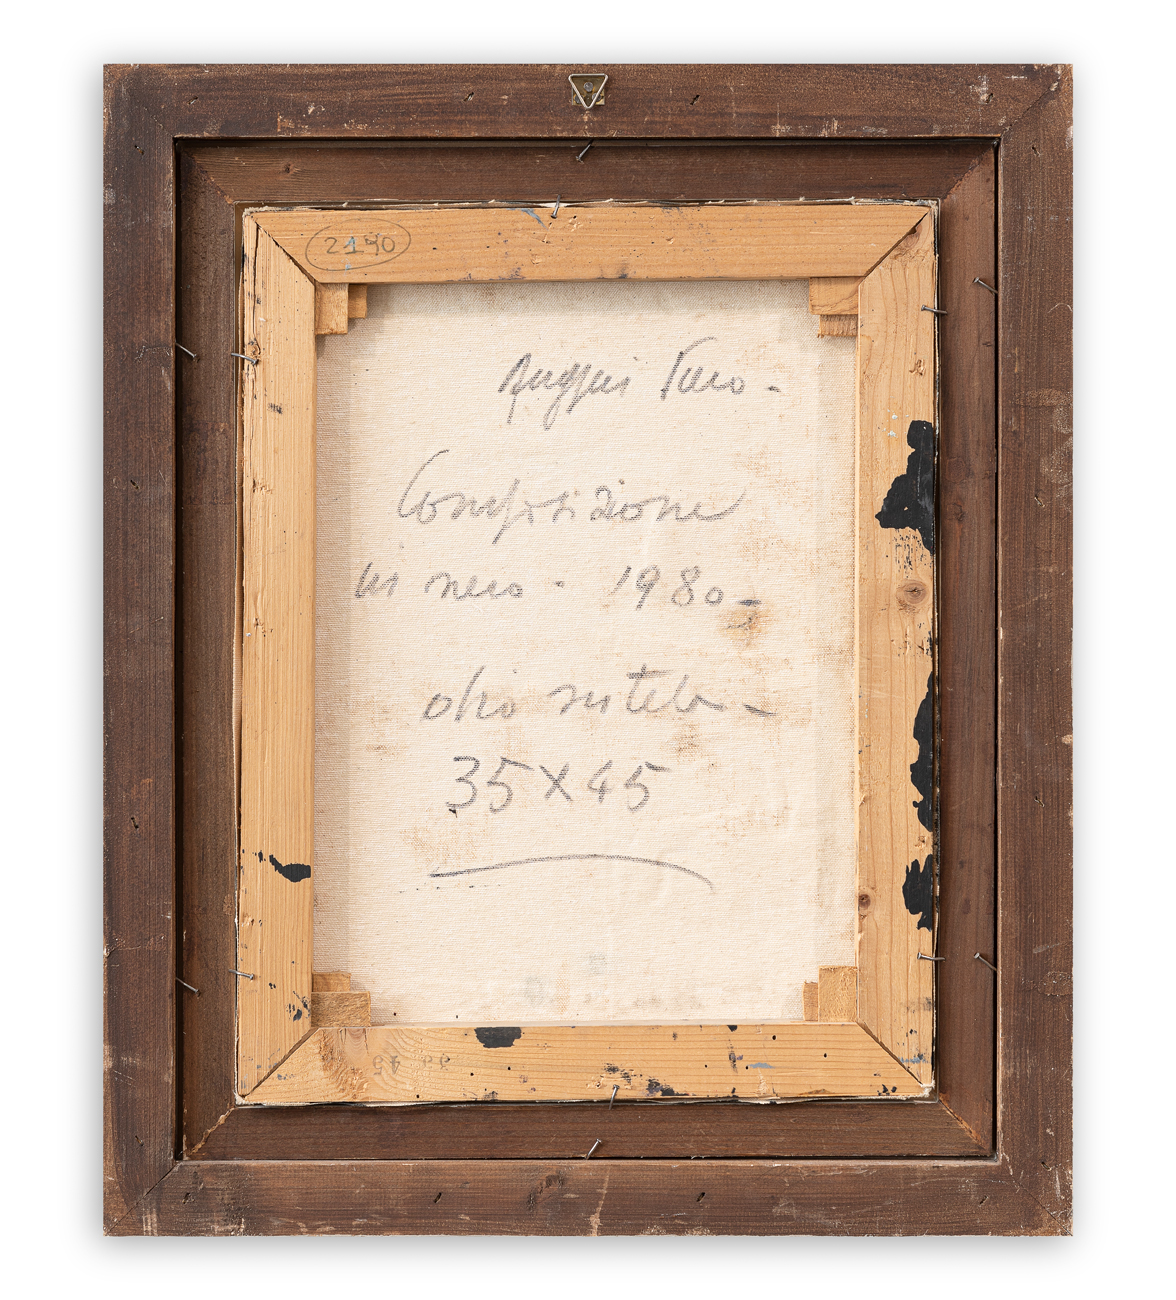 Ruggeri Piero -
Composizione
in nero - 1980 -
olio su tela -
35 x 45